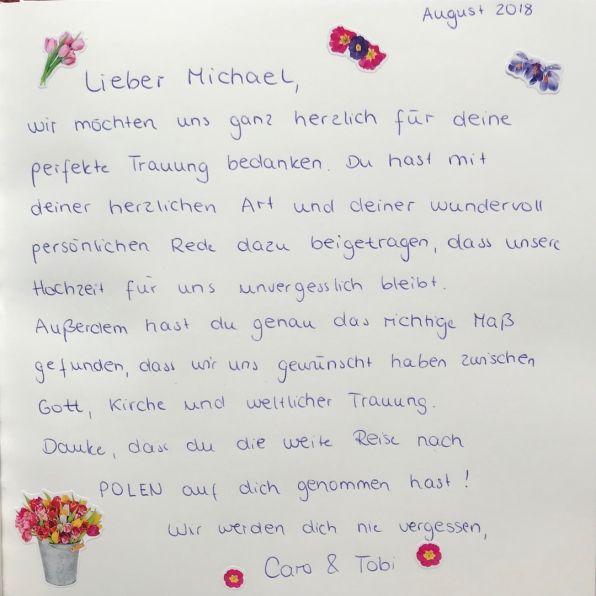 August 2018
Lieber Michael,
wir möchten uns ganz herzlich für deine
perfekte Trauung bedanken. Du hast mit
deiner herzlichen Art und deiner wundervoll
persönlichen Rede dazu beigetragen, dass unsere
Hochzeit für uns unvergesslich bleibt.
Außerdem hast du genau das richtige Maß
gefunden, dass wir uns gewünscht haben zwischen
Gott, Kirche und weltlicher Trauung.
Danke, dass du die weite Reise nach
POLEN auf dich genommen hast!
Wir werden dich nie vergessen,
Caro & Tobi